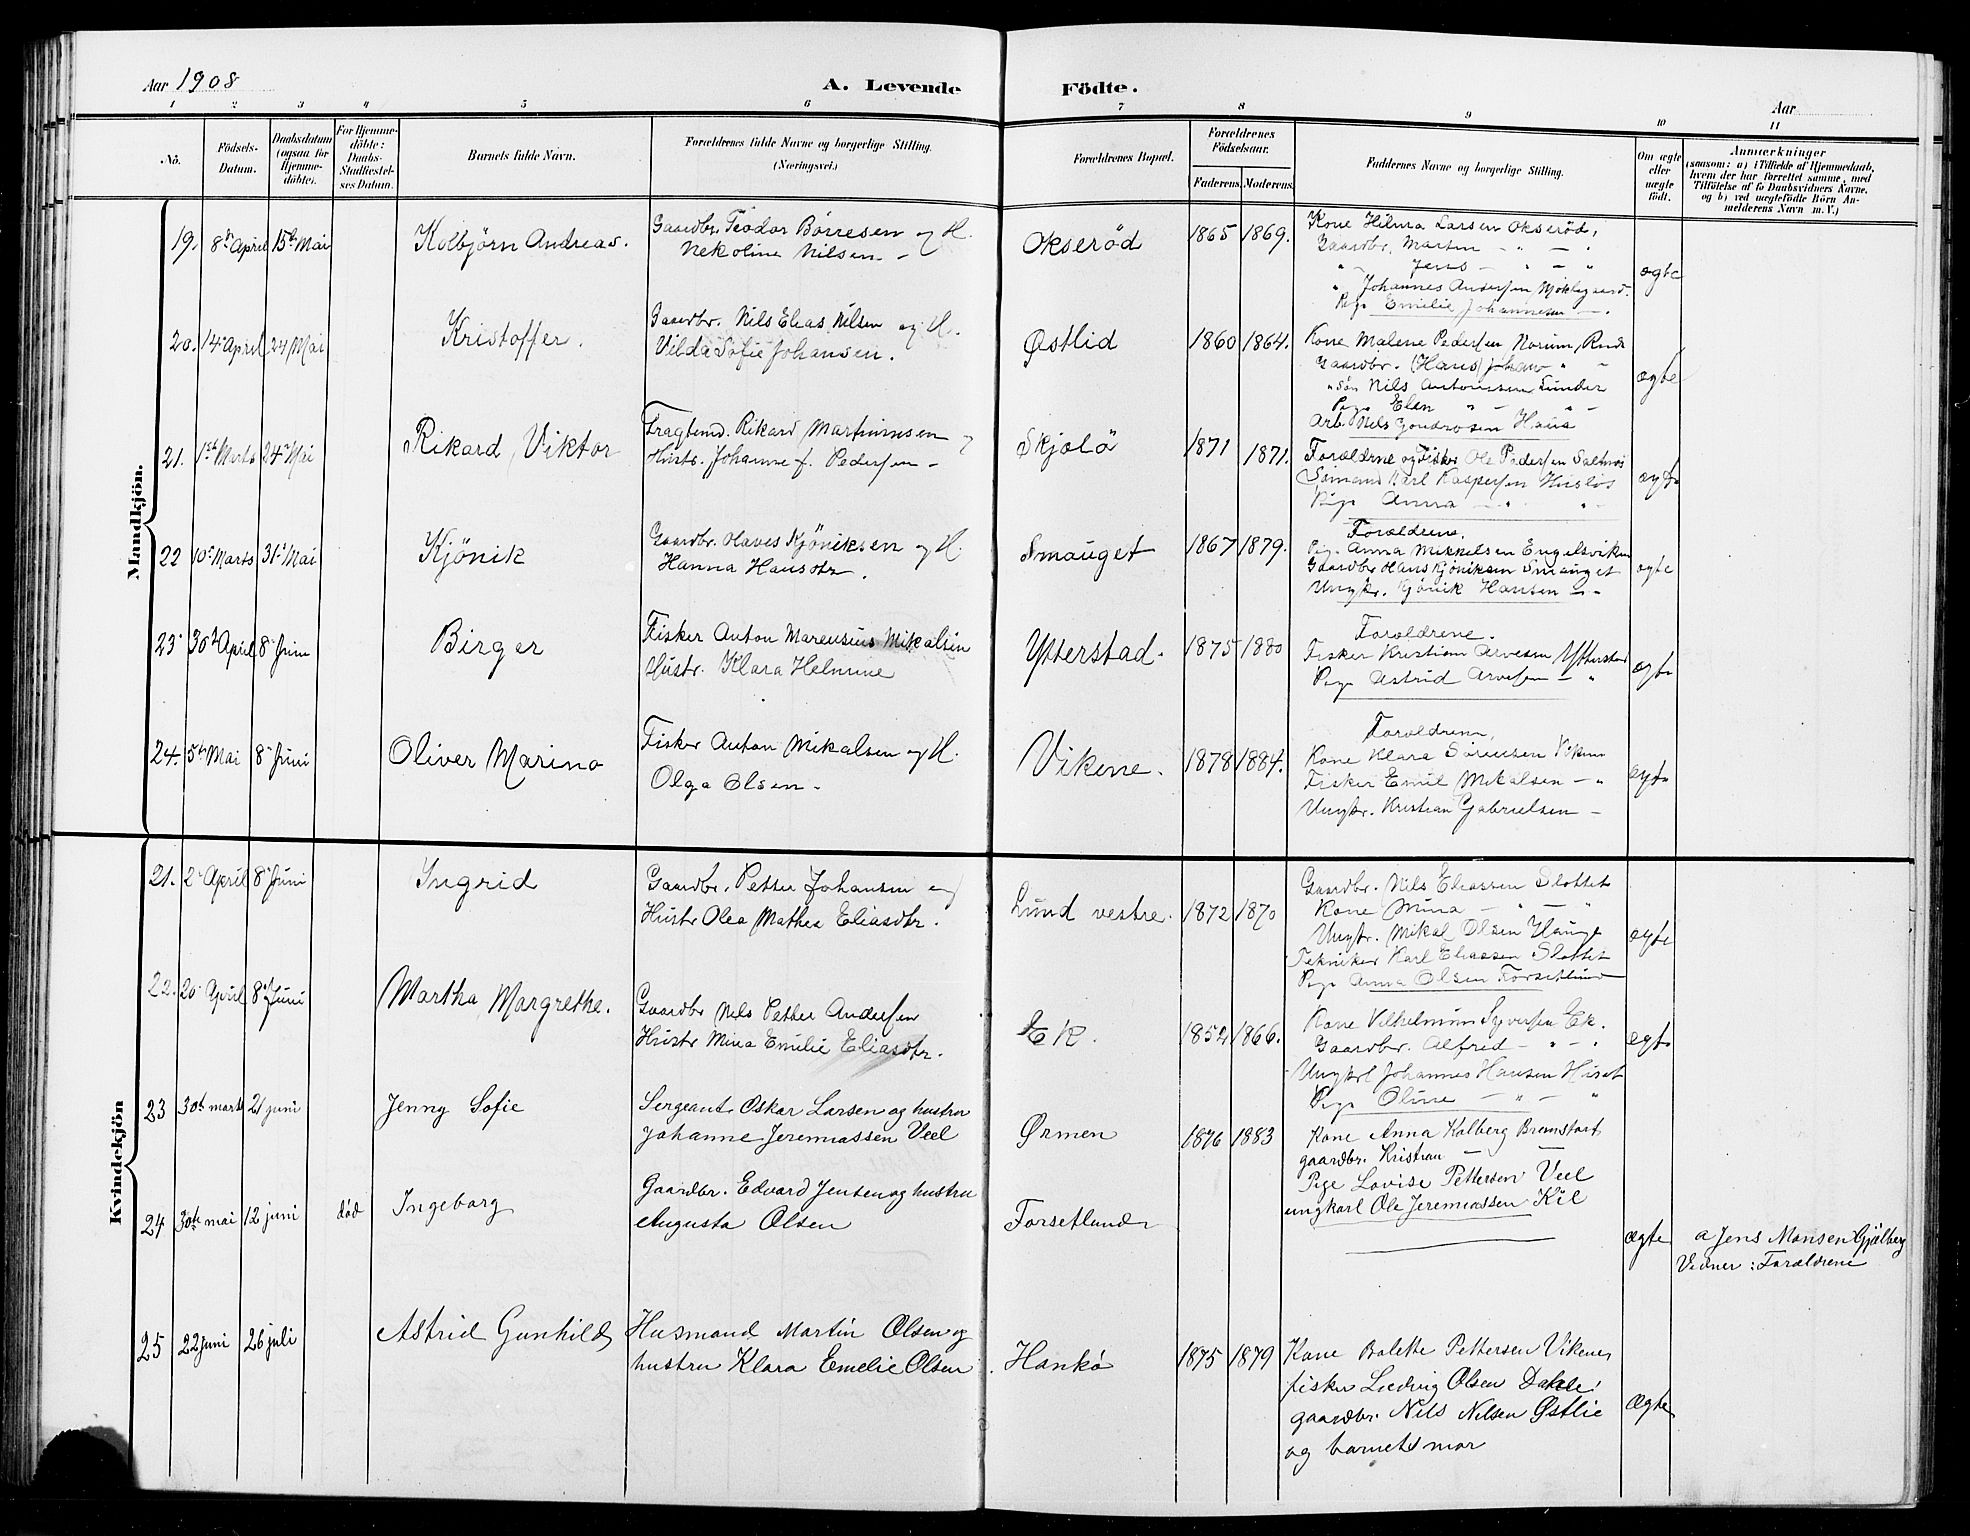 Aar 1908
A. Levende Födte.
Aar
1 2 3 4 5 6 7 8 9 10 11
No.
Födsels-
Datum.
Daabsdatum
(ogsaa for
Hjemme-
döbte).
For Hjemme-
döbte:
Daabs-
Stadfæstel-
ses Datum.
Barnets fulde Navn.
Forældrenes fulde Navne og borgerlige Stilling.
(Næringsvei.)
Forældrenes Bopæl.
Forældrenes
Födselsaar.
Faderens. Moderens.
Faddernes Navne og borgerlige Stilling.
Om ægte
eller
uægte
födt.
Anmærkninger
(saasom: a) i Tilfælde af Hjemmedaab,
hvem der har forrettet samme, med
Tilföielse af to Daabsvidners Navne.
og b) ved uægtefödte Börn An-
melderens Navn m. V.)
Mandkjön.
19. 8de April 15de Mai
Kolbjörn Andreas.
Gaardbr. Teodor Börresen og H.
Nekoline Nilsen -
Okseröd
1865 1869.
Kone Hilma Larsen Okseröd,
Gaardbr. Martin - " - "
" - Jens - " - "
" Johannes Andersen
Pige Emilie Johannesen - .
ægte
20. 14de April 24 Mai
Kristoffer.
Gaardbr. Nils Elias Nilsen og H.
Vilda Sofie Johansen.
Østlid
1860 1864.
Kone Malene Pedersen Norum,
Gaardbr. (Hans) Johan " -
" Sön Nils Antonsen Lunder
Pige Elen " - " -
Arb. Nils
ægte
21. 1ste Marts 24de Mai
Rikard Viktor
Fragtemd. Rikard Martinusen og
Hustr. Johanne f. Pedersen -
Skjælö
1871 1871.
Forældrene og Fisker Ole Pedersen Saltnes
Sömand Karl Kaspersen Huslös
Pige Anna - " "
ægte
22 10de Marts 31te Mai
Kjönik
Gaardbr. Hans Kjöniksen og H.
Hanna Hansdtr.
Smauget
1867 1879.
Forældrene.
Pige Anna Mikkelsen Engelsviken
Gaardbr Hans Kjöniksen Smauget
Ungkr. Kjönik Hansen - -
ægte
23 30te April 8de Juni
Birger
Fisker Anton Marensius Mikalsen
Hustr. Klara Helmine
Ytterstad.
1875 1880
Forældrene.
Fisker Kristian Arvesen Ytterstad
Pige Astrid Arvesen - "
ægte
24. 5te Mai 8de Juni
Oliver Marino
Fisker Anton Mikalsen og H.
Olga Olsen.
Vikene.
1878 1884.
Forældrene,
Kone Klara Sörensen Vikene
Fisker Emil Mikalsen - "
Ungkr. Kristian Gabrielsen -
ægte
Kvindekjön
21. 2de April 8de Juni
Ingrid
Gaardbr. Petter Johansen og
Hustr Olea Mathea Eliasdtr.
Lund vestre.
1872 1870
Gaardbr. Nils Eliassen Slottet
Kone Mina - " - "
Ungkr. Mikal Olsen Hauge
Tekniker Karl Eliassen Slottet
Pige Anna Olsen Forsetlund
ægte
22. 20de April 8de Juni
Martha Margrethe.
Gaardbr Nils Petter Andersen
Hustr Mina Emilie Eliasdtr.
Ek.
1852 1866.
Kone Vilhelmine Syversen Ek.
Gaardbr. Alfred - " - "
Ungkrl Johannes Hansen Huset
Pige Oline - " - "
ægte
23 30te marts 21 juni
Jenny Sofie
Sergeant Oskar Larsen og hustru
Johanne Jeremiassen Veel
Ørmen
1876 1883
Kone Anna Kolberg
gaardbr. Kristian - -
Pige Lovise Pettersen Veel
ungkarl Ole Jeremiassen Kil
24 30te mai 12 juni død
Ingeborg
Gaardbr. Edvard Jensen og hustru
Augusta Olsen
Forsetlund
ægte
a Jens Monsen Gjølberg
Vidner: Forældrene
25 22 juni 26 juli
Astrid Gunhild
Husmand Martin Olsen og
hustru Klara Emelie Olsen.
Hankø
1875 1879
Kone Balette Pettersen Vikene,
fisker Ludvig Olsen Dahle,
gaardbr. Nils Nilsen Østlie
og barnets mor
ægte